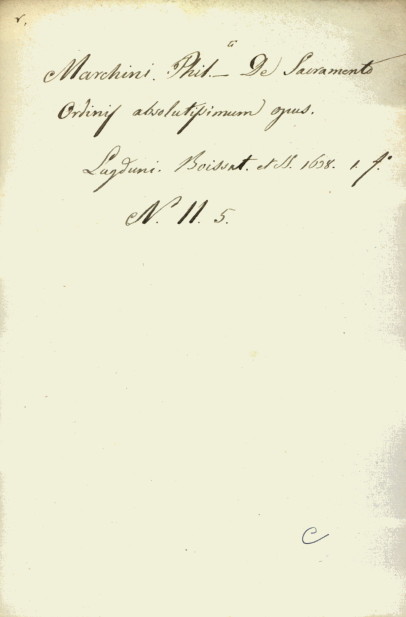 r.
Marchini. Phil.a De Sacramento
Ordinis absolutissimum opus.
Lugduni. Boissat. et S. 1638. 1. f.o
N. 11. 5.
C